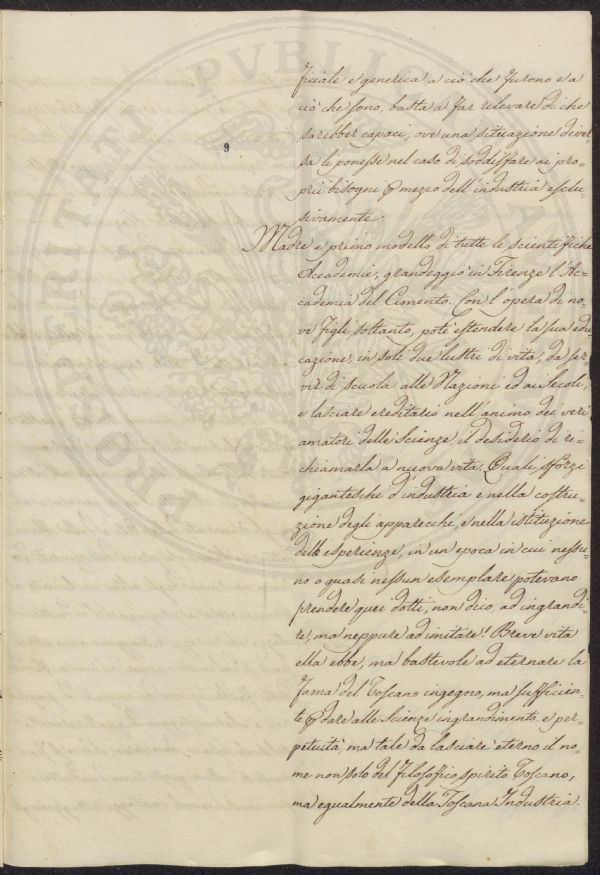 PROSPERITATI PVBLI A
9
ficiale e generica, a ciò che furono e a
ciò che sono, basta a far rilevare di che
sarebber capaci, ove una situazione diver=
sa li ponesse nel caso di soddisfare ai pro=
prii bisogni p mezzo dell'industria esclu=
sivamente.
Madre e primo modello di tutte le scientifiche
Accademie, grandeggiò in Firenze l'Ac=
cademia del Cimento. Con l'opera di no=
ve figli soltanto, potè estendere la sua edu=
cazione, in soli due lustri di vita, da ser=
vir di scuola alle Nazioni ed ai Secoli,
e lasciare ereditario nell'animo dei veri
amatori delle Scienze il desiderio di ri=
chiamarla a nuova vita. Quali sforzi
giganteschi d'industria e nella costru=
zione degli apparecchi, e nella istituzione
delle esperienze, in un epoca in cui nessu=
no o quasi nessun esemplare potevano
prendere quei dotti, non dico, ad ingrandi=
re, ma neppure ad imitare! Breve vita
ella ebbe, ma bastevole ad eternare la
fama del Toscano ingegno, ma sufficien=
te p dare alle Scienze ingrandimento e per=
petuità, ma tale da lasciare eterno il no=
me non solo del filosofico spirito Toscano,
ma egualmente della Toscana Industria.